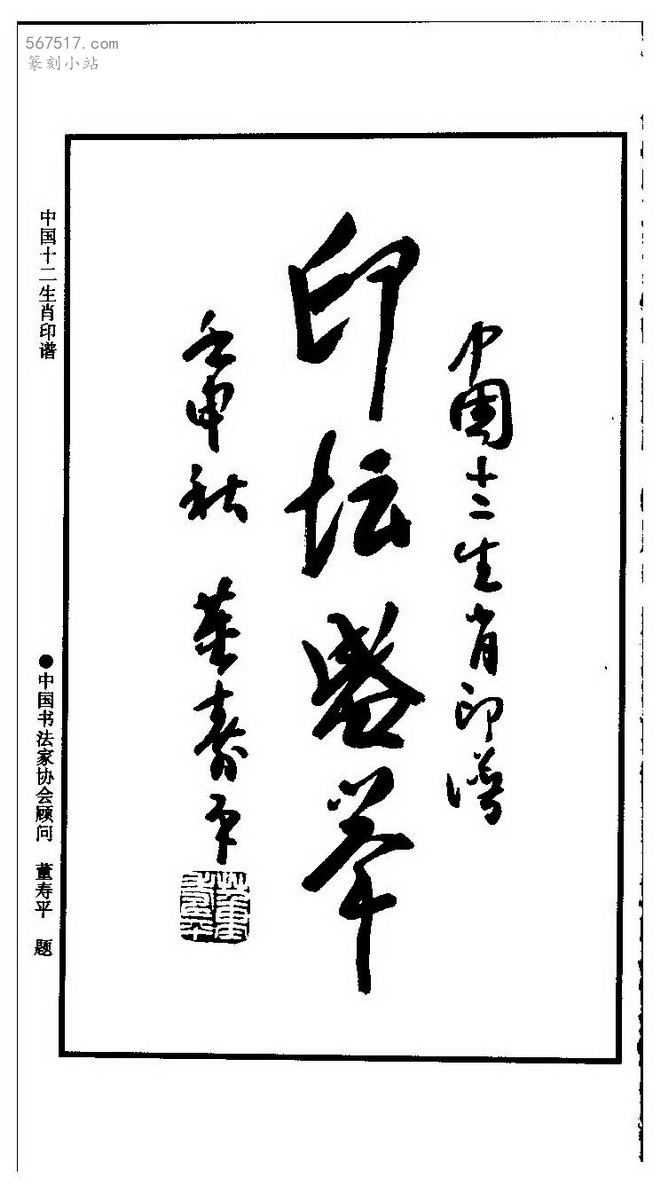 567517.com
篆刻小站
中国十二生肖印谱
印坛盛举
壬申秋 董寿平
董寿平
中国十二生肖印谱
●中国书法家协会顾问 董寿平 题